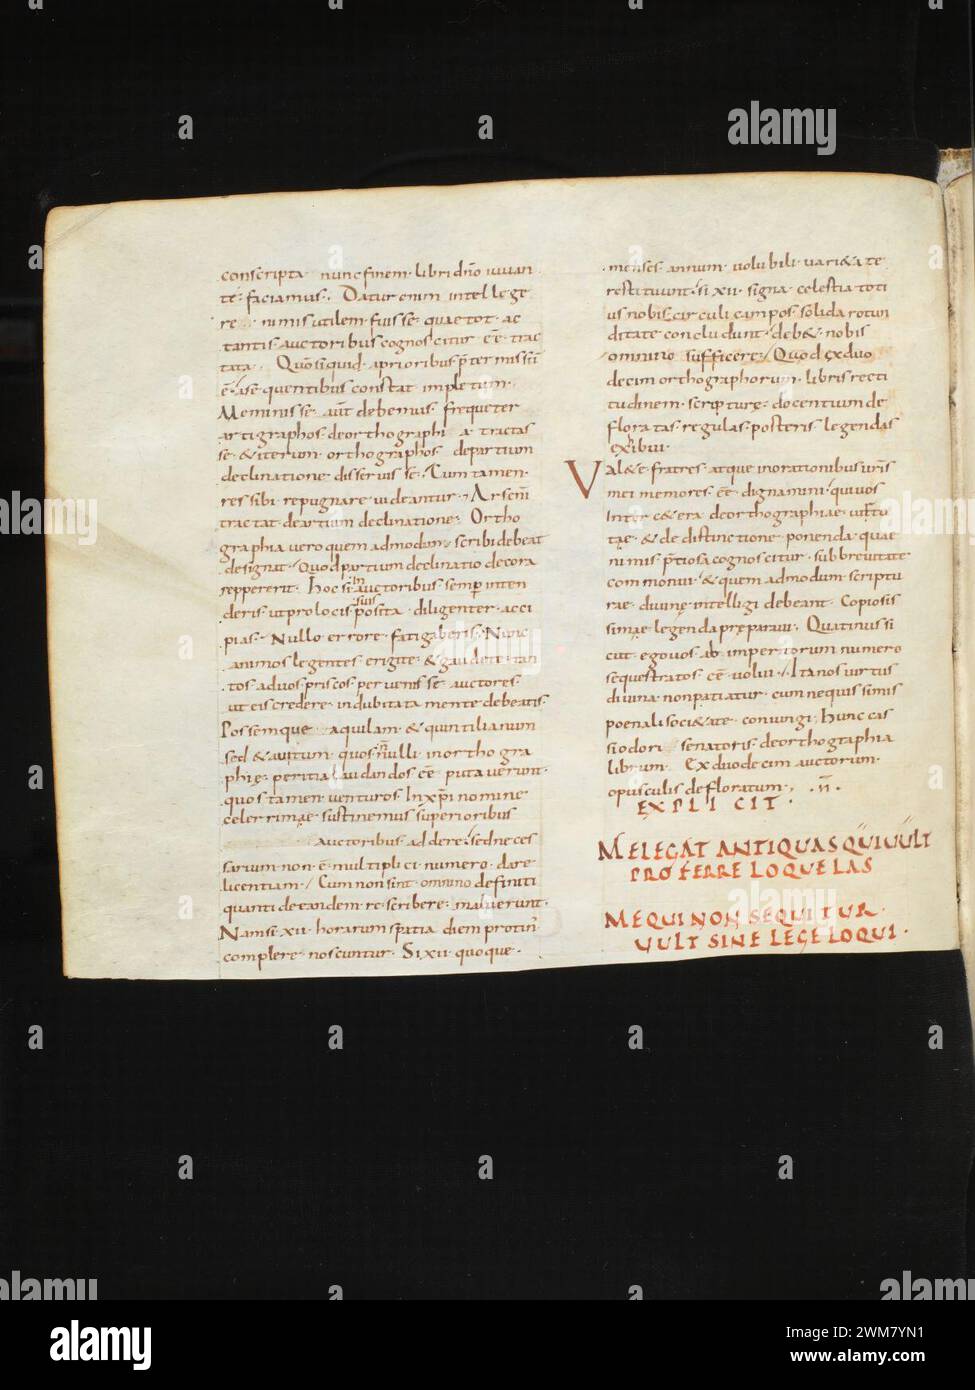 conscripta nunc finem libri dño iuuan
te faciamus. Datur enim intellege
re nimis utilem fuisse quae tot ac
tantis auctoribus cognoscitur eē trac
tata. Quōsi quid a prioribus p̄termissū
ē ase quentibus constat impletum.
Meminisse aūt debemus frequēter
artigraphos de orthographia tractas
se & iterum orthographos de partium
declinatione disseruisse. Cum tamen
res sibi repugnare uideantur. Ars em̄
tractat de artium declinatione. Ortho
graphia uero quem admodum scribi debeat
designat. Quod partium declinatio decora
reppererit. Hoc si in auctoribus semp inten
deris ut pro locis suis posita diligenter acci
pias. Nullo errore fatigaberis. Nunc
animos legentes erigite & gaudete tan
tos ad uos priscos peruenisse auctores
ut eis credere indubitata mente debeatis.
Possemque aquilam & quintilianum
sed & auitum quos n̄nulli in orthogra
phię peritia laudandos eē putauerunt.
quos tamen uenturos In xp̄i nomine
celerrimae sustinemus superioribus
auctoribus addere. sed neces
sarium non ē multiplici numero dare
licentiam. Cum non sint omnino definiti
quanti de tandem re scribere maluerunt.
Nam se xii horarum spatia diem
complere noscuntur. Si xii quoque.
menses annum uolubili uari&ate
restituunt. si xii signa celestia toti
us nobis circuli campos solida rotun
ditate concludunt. deb& nobis
omnino sufficere. Quod ex duo
decim orthographorum libris recti
tudinem scripturę docentium de
floratas regulas posteris legendas
exibui.
Val&e fratres atque in orationibus uris
mei memores eē dignamini. qui uos
Inter c&era de orthographiae
& de distinctione ponenda quae
nimis p̄tiosa cognoscitur sub breuitate
commonui. & quem admodum scriptu
rae diuinę intelligi debeant. Copiosis
simae legenda pręparaui. Quatinus si
cut ego uos ab imperitorum numero
sequestratos eē uolui. Ita nos uirtus
diuina non patiatur cum nequissimis
poenali soci&ate coniungi. Hunc cas
siodori senatoris de orthographia
librum. Ex duodecim auctorum.
opusculis defloratum.
EXPLICIT.
ME LEGAT ANTIQUAS QUI UULT
PROFERRE LOQUELAS
ME QUI NON SEQUITUR
UULT SINE LEGE LOQUI.
alamy
Image ID: 2WM7YN1
www.alamy.com